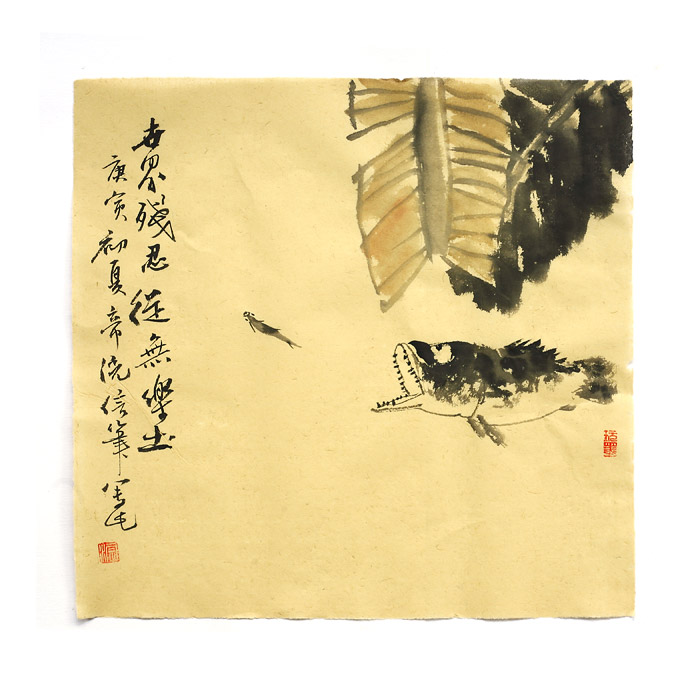 世界殘忍從無樂土
庚寅初夏帝浇信筆寫之